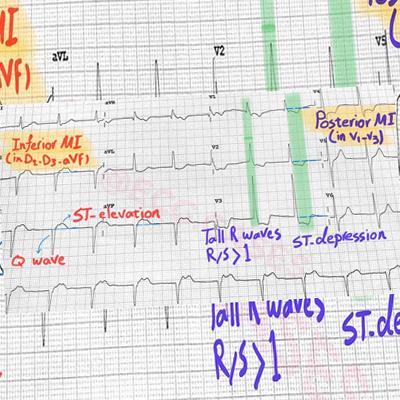 MI
aVf)
aVL
V2
V5
aVR
V1
V4
Inferior MI
(in D2-D3-aVf)
Posterior MI
(in V1-V3)
aVL
V2
ST-elevation
Q wave
aVF
V3
Tall R waves
R/S>1
ST-depression
Tall R waves
R/S>1
ST-de